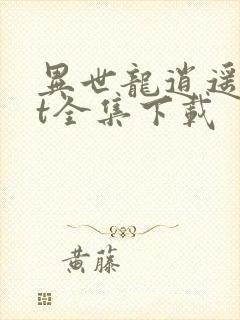 異世龍逍遥
t全集下載
黄藤